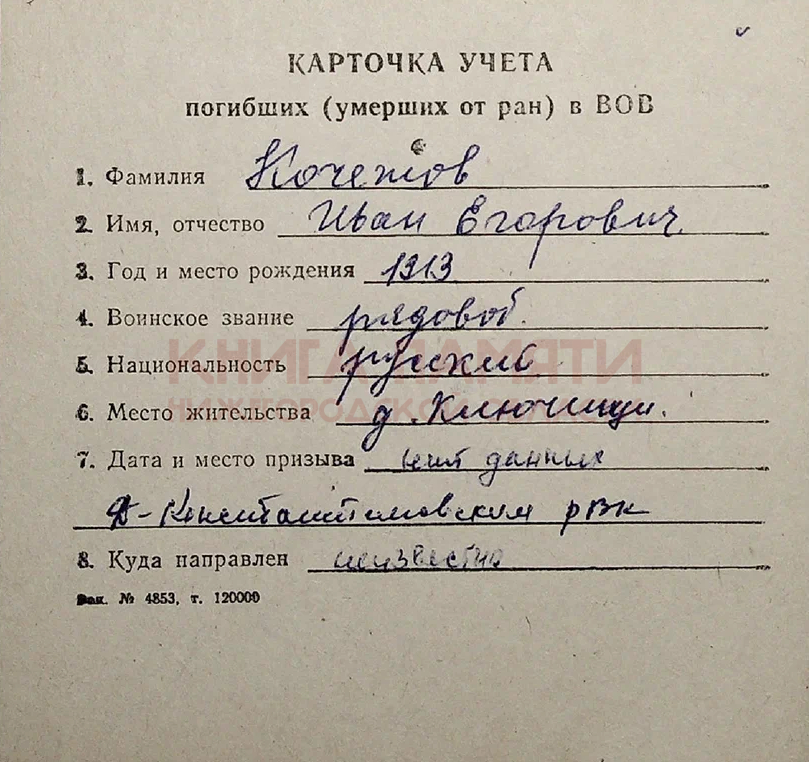 КАРТОЧКА УЧЕТА
погибших (умерших от ран) в ВОВ
1. Фамилия Кочетов
2. Имя, отчество Иван Егорович
3. Год и место рождения 1913
4. Воинское звание рядовой.
5. Национальность русский
КНИГА ПАМЯТИ
6. Место жительства д. Ключищи.
НИЖЕГОРОДСКОЙ
7. Дата и место призыва нет данных
Д-Константиновским рвк
8. Куда направлен неизвестно
Зак. № 4853, т. 120000